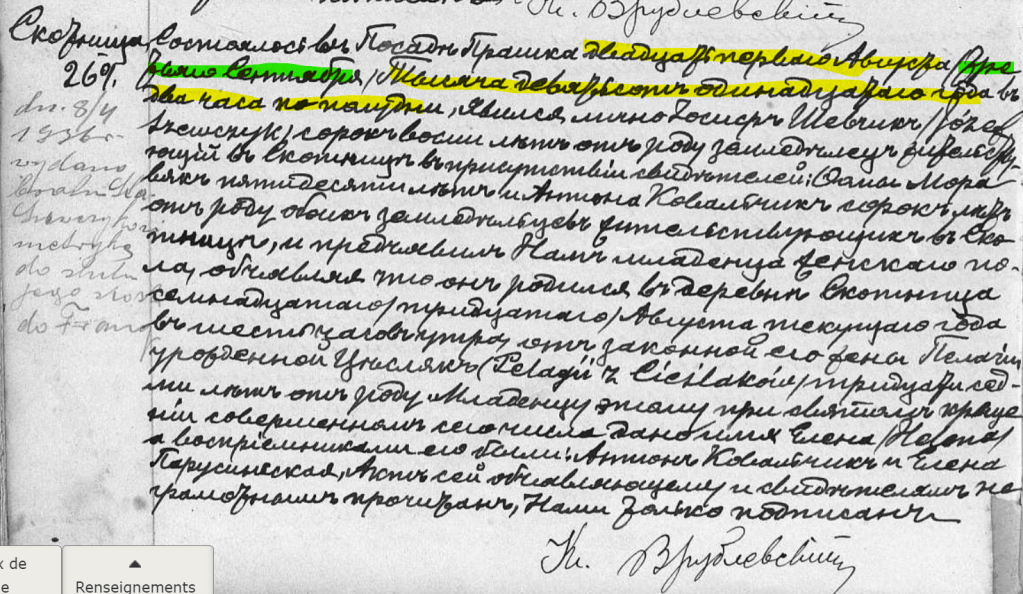 Кс. Врублевскій
Скотница
26%.
Состоялось въ Посадѣ Прашка двадцать перваго Августа /тре
тьяго Сентября/ Тысяча девятьсотъ одинадцатаго года въ
два часа по полудни, явился лично Іосифъ Шевчикъ /Józef
Szewczyk/ сорокъ восми лѣтъ отъ роду земледѣлецъ жительству
ющій въ Скотницѣ въ присутствіи свидѣтелей: Фомы Мора
вякъ пятидесяти лѣтъ и Антона Ковальчикъ сорокъ лѣтъ
отъ роду обоихъ земледѣльцевъ жительствующихъ въ Ско
тницѣ, и предъявилъ Намъ младенца женскаго по-
ла, объявляя что онъ родился въ деревнѣ Скотница
семнадцатаго /тридцатаго/ Августа текущаго года
въ шесть часовъ утра, отъ законной его жены Пелагіи
урожденной Цесляку (Pelagii z Cieślaków/ тридцати сед-
ми лѣтъ отъ роду Младенцу этому при святомъ креще
ніи совершенномъ сего числа дано имя Елена /Helena/
а воспріемниками его были: Антонъ Ковальчикъ и Елена
Парусинская, Актъ сей объявляющему и свидѣтелямъ не
грамотнымъ прочитанъ, Нами только подписанъ
Кс. Врублевскій
dn. 8/4
1936 r.
wydano
Szewczykow
metrykę
do ślubu
jego
do Franc
x de
e
Renseignements